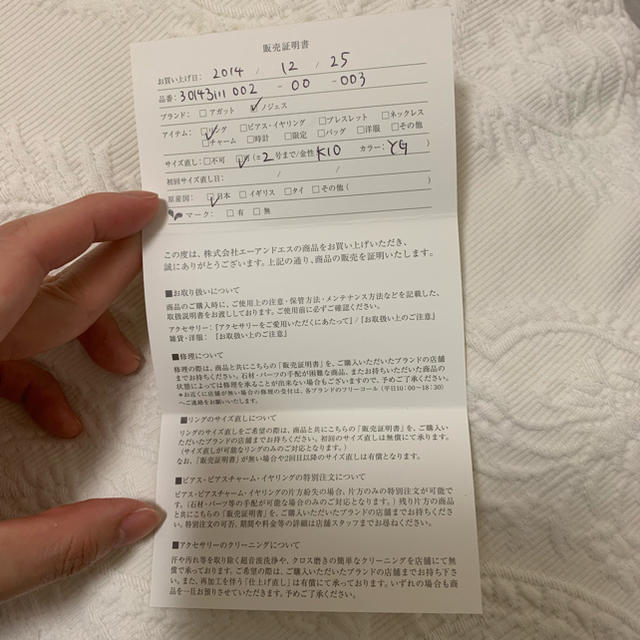 販売証明書
お買い上げ日: 2014 / 12 / 25
品番: 30143111 002 - 00 - 003
ブランド: □アガット ☑ノジェス
アイテム: ☑リング □ピアス・イヤリング □ブレスレット □ネックレス
□チャーム □時計 □限定 □バッグ □洋服 □その他
サイズ直し: □不可 ☑可(±2号まで/金性 K10 カラー: YG )
初回サイズ直し日: / /
原産国: ☑日本 □イギリス □タイ □その他( )
マーク: □有 □無
この度は、株式会社エーアンドエスの商品をお買い上げいただき、
誠にありがとうございます。上記の通り、商品の販売を証明いたします。
■お取り扱いについて
商品のご購入時に、ご使用上の注意・保管方法・メンテナンス方法などを記載した、
取扱説明書をお渡ししております。ご使用前に必ずご確認ください。
アクセサリー:「アクセサリーをご愛用いただくにあたって」/「お取扱い上のご注意」
雑貨・洋服: 「お取扱い上のご注意」
■修理について
修理の際は、商品と共にこちらの「販売証明書」を、ご購入いただいたブランドの店舗
までお持ちください。石材・パーツの手配が困難な商品、またお持ちいただいた商品の
状態によっては修理を承ることが出来ない場合もございますので、予めご了承ください。
*お近くに店舗が無い場合の修理の受付は、各ブランドのフリーコール(平日10:00〜18:30)
へご連絡をお願いいたします。
■リングのサイズ直しについて
リングのサイズ直しをご希望の際は、商品と共にこちらの「販売証明書」を、ご購入い
ただいたブランドの店舗までお持ちください。初回のサイズ直しは無償にて承ります。
(サイズ直しが可能なリングのみのご対応となります。)
なお、「販売証明書」が無い場合や2回目以降のサイズ直しは有償となります。
■ピアス・ピアスチャーム・イヤリングの特別注文について
ピアス・ピアスチャーム・イヤリングの片方紛失の場合、片方のみの特別注文が可能で
す。(石材・パーツ等の手配が可能な場合のみのご対応となります。)残り片方の商品
と共にこちらの「販売証明書」を、ご購入いただいたブランドの店舗までお持ちくださ
い。特別注文の可否、期間や料金等の詳細は店舗スタッフまでお尋ねください。
■アクセサリーのクリーニングについて
汗や汚れ等を取り除く超音波洗浄や、クロス磨きの簡単なクリーニングを店舗にて無
償で承っております。ご希望の際は、ご購入いただいたブランドの店舗までお持ち下さ
い。また、再加工を伴う「仕上げ直し」は有償にて承っております。いずれの場合も商
品を一旦お預りさせていただきます。予めご了承ください。